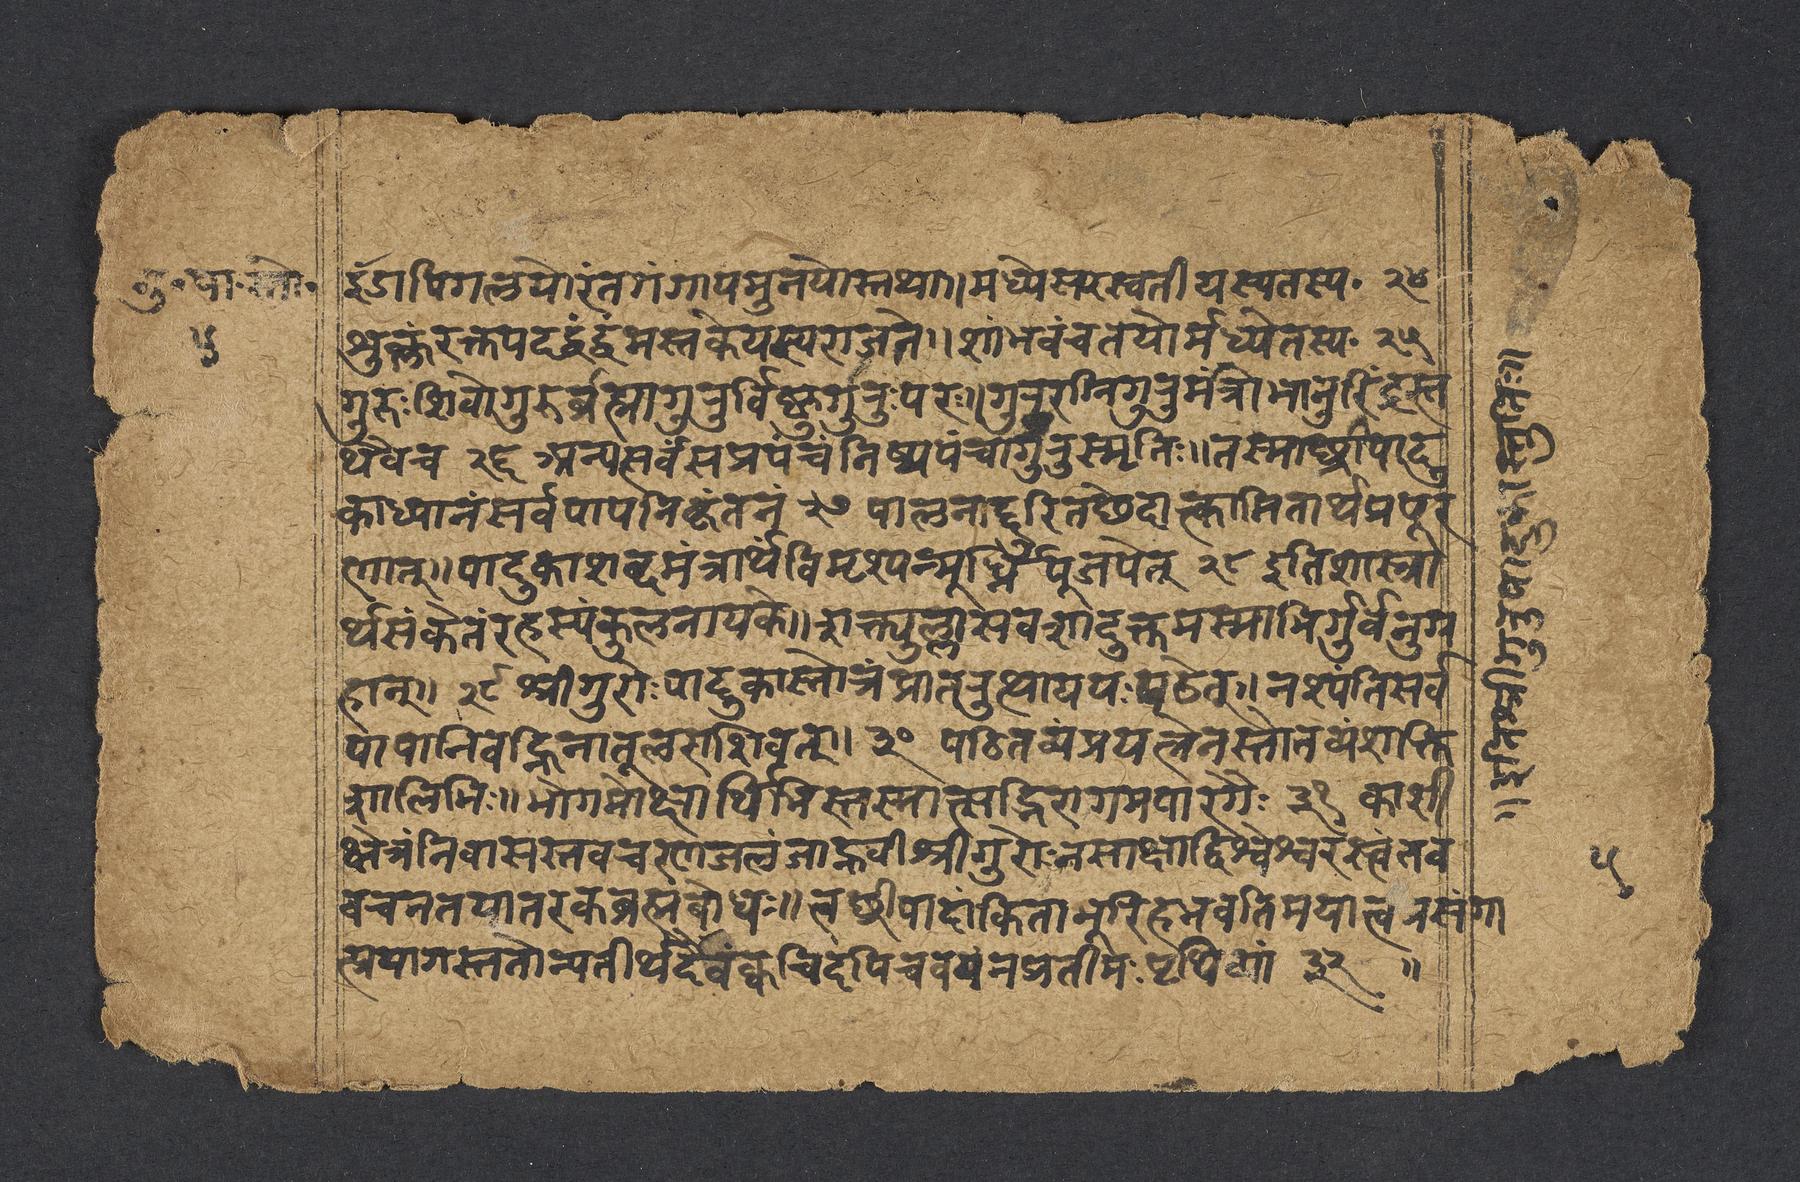 गु॰पा॰स्तो॰
५
इंडापिंगलयोरंतर्गंगायमुनयोस्तथा।मध्येसरस्वतीयस्यतस्य॰ २४
शुक्लंरक्तपदद्वंद्वंमस्तकेयस्यराजते॥शांभवंचतयोर्मध्येतस्य॰ २५
गुरुःशिवोगुरुर्ब्रह्मागुरुर्विष्णुर्गुरुःपरः॥गुरुरग्निगुरुर्मंत्रोभानुरिंद्रस्त
थैवच २६ अन्यसर्वंसप्रपंचंनिष्प्रपंचागुरुस्मृतिः॥तस्माछ्रीपादु
काध्यानंसर्वपापनिकृंतनं २७ पालनाद्दुरितछेदात्कामितार्थप्रपूर
णात्॥पादुकाशब्दमंत्रार्थंविमृश्यन्मूर्ध्निपूजयेत् २८ इतिशास्त्रा
र्थसंकेतंरहस्यंकुलनायके॥शक्त्युल्लासवशादुक्तमस्माभिर्गुर्वनुग्र
हात्॥ २९ श्रीगुरोःपादुकास्तोत्रंप्रातरुत्थाययःपठेत्॥नश्यंतिसर्व
पापानिवह्निनातूलराशिवत्॥ ३० पठितव्यंप्रयत्नेनस्तोतव्यंशक्ति
शालिभिः॥भोगमोक्षार्थिभिस्तस्मात्सद्भिरागमपारगैः ३१ काशी
क्षेत्रंनिवासस्तवचरणजलंजाह्नवीश्रीगुरोःनसाक्षाद्विश्वेश्वरस्त्वंतव
वचनतयातारकब्रह्मबोधः॥त्वछ्रीपादांकिताभूरिहभवतिमयात्वत्रसंगा
त्प्रयागस्त्वत्तोन्यतीर्थदैवंक्वचिदपिचवयंनप्रतीमःपृथिव्यां ३२ ॥
॥इतिश्रीगुरुपादुकास्तुतिः॥
५